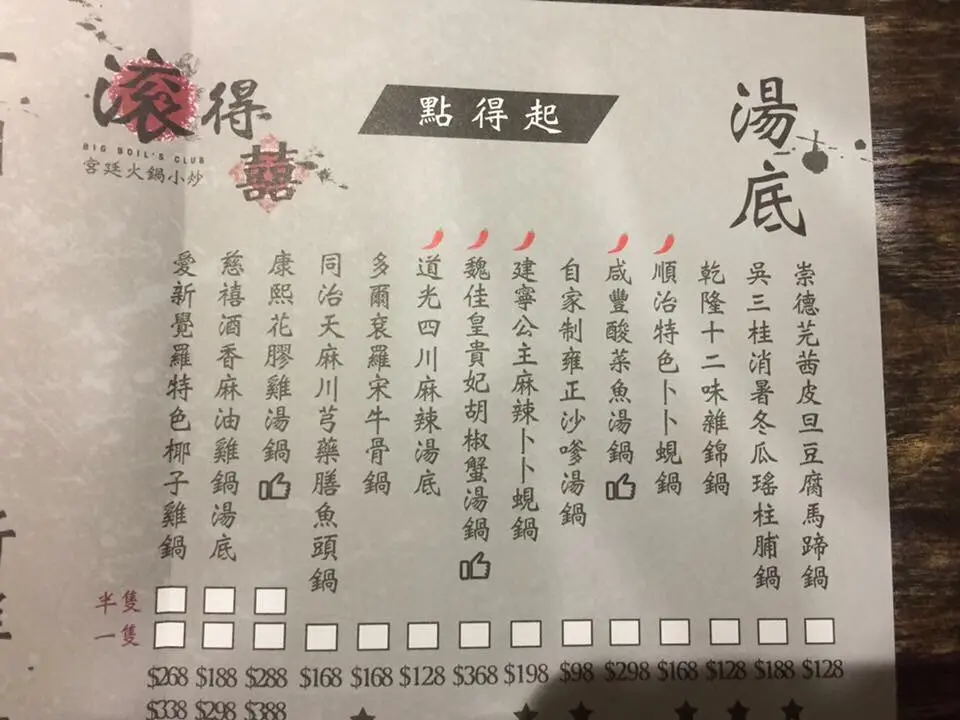 滾得囍
BIG BOIL'S CLUB
宮廷火鍋小炒
點得起
湯底
崇德芫茜皮旦豆腐馬蹄鍋
吳三桂消暑冬瓜瑤柱脯鍋
乾隆十二味雜錦鍋
順治特色卜卜蜆鍋
咸豐酸菜魚湯鍋
自家制雍正沙嗲湯鍋
建寧公主麻辣卜卜蜆鍋
魏佳皇貴妃胡椒蟹湯鍋
道光四川麻辣湯底
多爾袞羅宋牛骨鍋
同治天麻川芎藥膳魚頭鍋
康熙花膠雞湯鍋
慈禧酒香麻油雞鍋湯底
愛新覺羅特色椰子雞鍋
半隻
一隻
$268 $188 $288 $168 $168 $128 $368 $198 $98 $298 $168 $128 $188 $128
$338 $298 $388